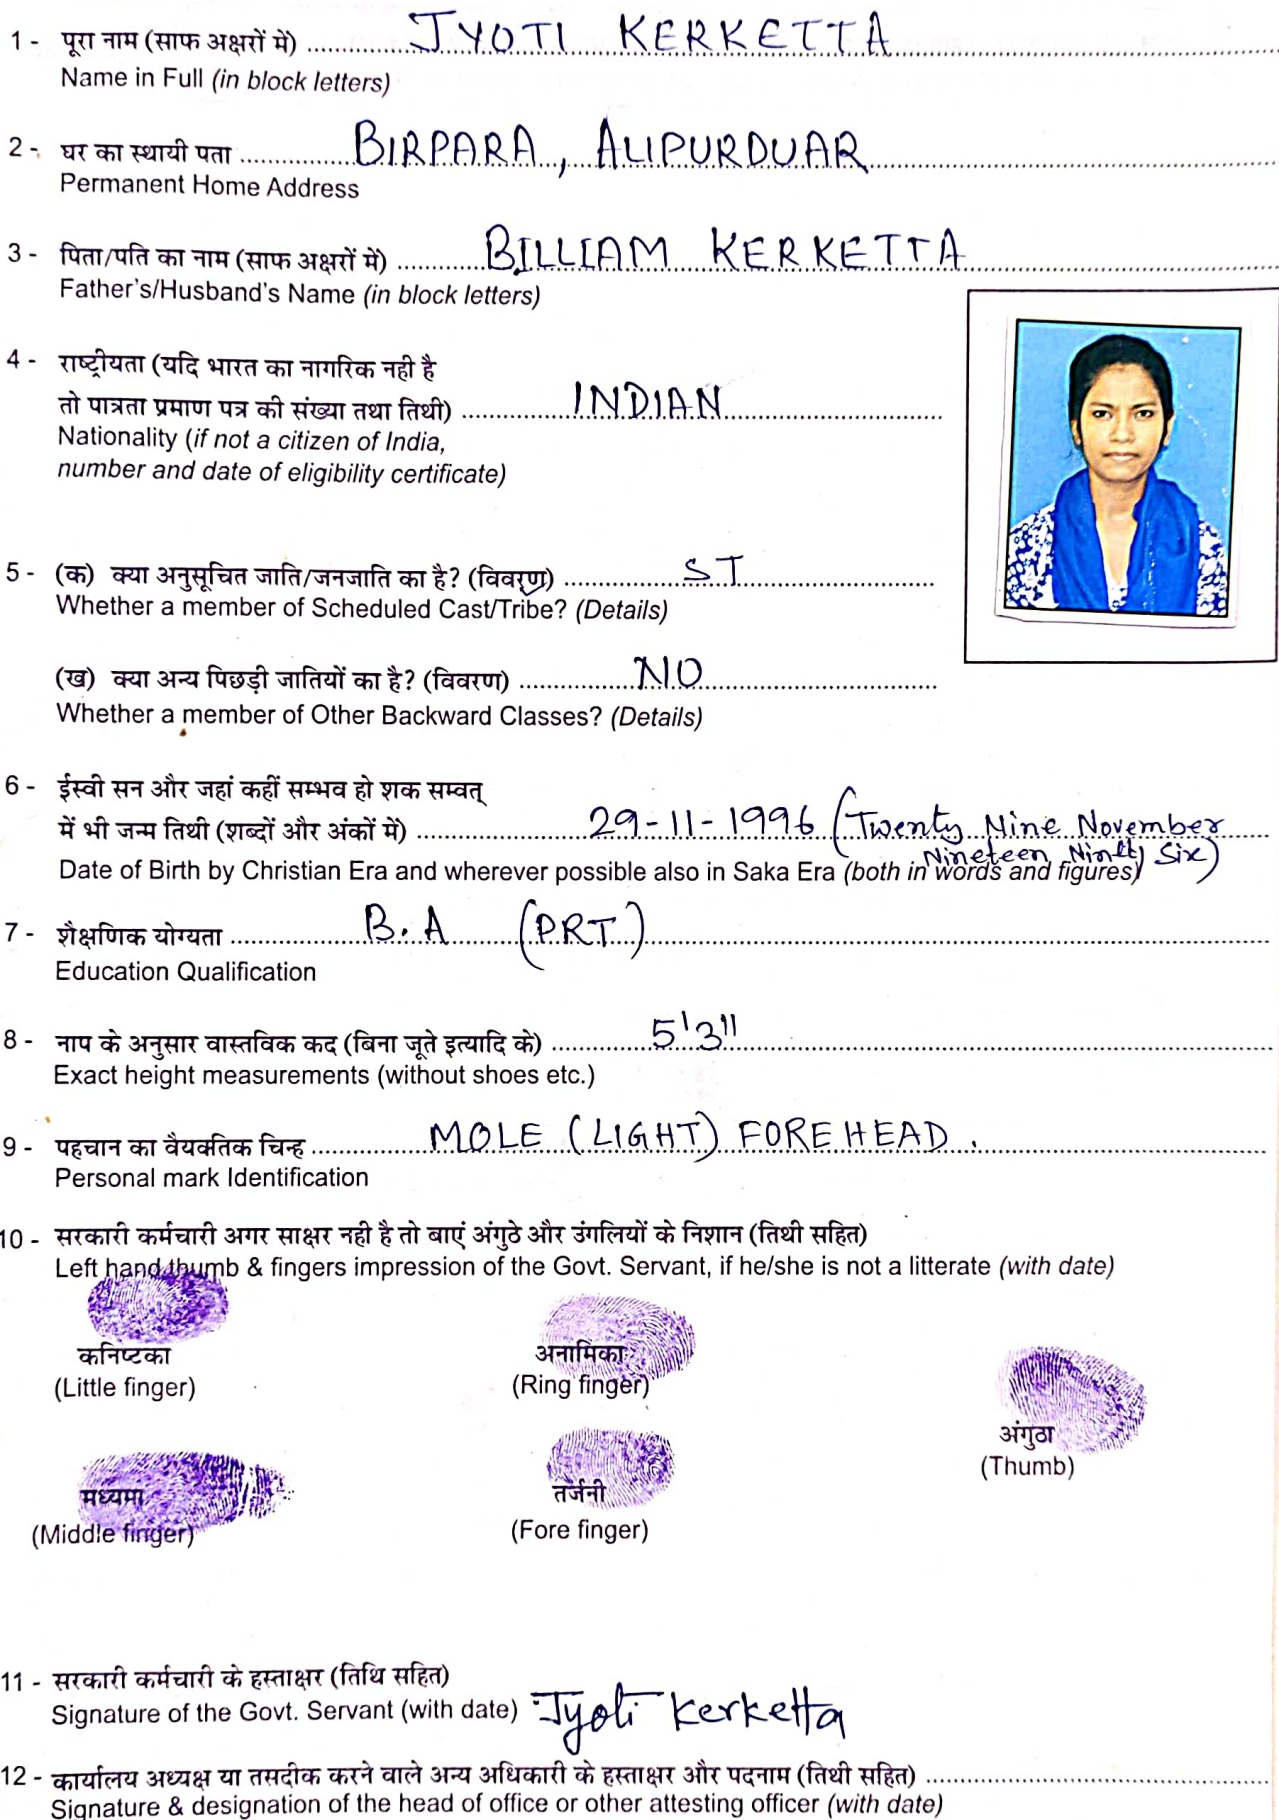 1 - पूरा नाम (साफ अक्षरों में) .............. JYOTI KERKETTA
Name in Full (in block letters)
2 - घर का स्थायी पता .............. BIRPARA, ALIPURDUAR
Permanent Home Address
3 - पिता/पति का नाम (साफ अक्षरों में) .............. BILLIAM KERKETTA
Father's/Husband's Name (in block letters)
4 - राष्ट्रीयता (यदि भारत का नागरिक नही है
तो पात्रता प्रमाण पत्र की संख्या तथा तिथी) .............. INDIAN
Nationality (if not a citizen of India,
number and date of eligibility certificate)
5 - (क) क्या अनुसूचित जाति/जनजाति का है? (विवरण) .............. ST
Whether a member of Scheduled Cast/Tribe? (Details)
(ख) क्या अन्य पिछड़ी जातियों का है? (विवरण) .............. NO
Whether a member of Other Backward Classes? (Details)
6 - ईस्वी सन और जहां कहीं सम्भव हो शक सम्वत्
में भी जन्म तिथी (शब्दों और अंकों में) .............. 29-11-1996 (Twenty Nine November
Nineteen Ninety Six)
Date of Birth by Christian Era and wherever possible also in Saka Era (both in words and figures)
7 - शैक्षणिक योग्यता .............. B.A (PRT)
Education Qualification
8 - नाप के अनुसार वास्तविक कद (बिना जूते इत्यादि के) .............. 5'3"
Exact height measurements (without shoes etc.)
9 - पहचान का वैयक्तिक चिन्ह .............. MOLE (LIGHT) FOREHEAD.
Personal mark Identification
10 - सरकारी कर्मचारी अगर साक्षर नही है तो बाएं अंगुठे और उंगलियों के निशान (तिथी सहित)
Left hand thumb & fingers impression of the Govt. Servant, if he/she is not a litterate (with date)
कनिष्टका
(Little finger)
अनामिका
(Ring finger)
अंगुठा
(Thumb)
मध्यमा
(Middle finger)
तर्जनी
(Fore finger)
11 - सरकारी कर्मचारी के हस्ताक्षर (तिथि सहित)
Signature of the Govt. Servant (with date) Jyoti Kerketta
12 - कार्यालय अध्यक्ष या तसदीक करने वाले अन्य अधिकारी के हस्ताक्षर और पदनाम (तिथी सहित) ..............
Signature & designation of the head of office or other attesting officer (with date)